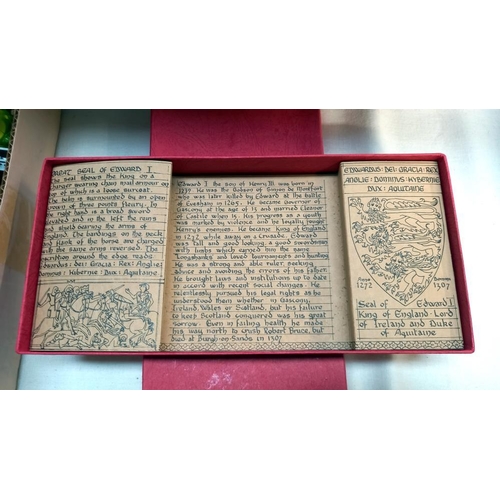 GREAT SEAL OF EDWARD I
The seal shows the King on a
charger wearing chain mail armour on
the helm is surrounded by an open
crown of three points fleury. In
the right hand is a broad sword
elevated and in the left the reins
a shield bearing the arms of
England. The bardings on the neck
and flank of the horse are charged
with the same arms reversed. The
inscription around the edge reads
Edwardus: Dei: Gracia: Rex: Anglie:
Dominus: Hibernie: Dux: Aquitaine:
Edward I the son of Henry III was born in
1239. He was the Godson of Simon de Montfort
who was later killed by Edward at the battle
of Evesham in 1265. He became Governor of
Gascony at the age of 13 and married Eleanor
of Castile when 15. His progress as a youth
was marked by violence and he loyally fought
Henry's enemies. He became King of England
in 1272 while away on a Crusade. Edward
was tall and good looking, a good swordsman
with limbs which earned him the name
Longshanks and loved tournaments and hunting
He was a strong and able ruler, seeking
advice and avoiding the errors of his father.
He brought laws and institutions up to date
in accord with recent social changes. He
relentlessly pursued his legal rights as he
understood them whether in Gascony,
Ireland, Wales or Scotland, but his failure
to keep Scotland conquered was his great
sorrow. Even in failing health he made
his way north to crush Robert Bruce, but
died at Burgh-on-Sands in 1307
EDWARDUS: DEI: GRACIA: REX
ANGLIE: DOMINUS: HYBERNIE
DUX: AQUITAINE
1272 1307
Seal of Edward I
King of England·Lord
of Ireland and Duke
of Aquitaine